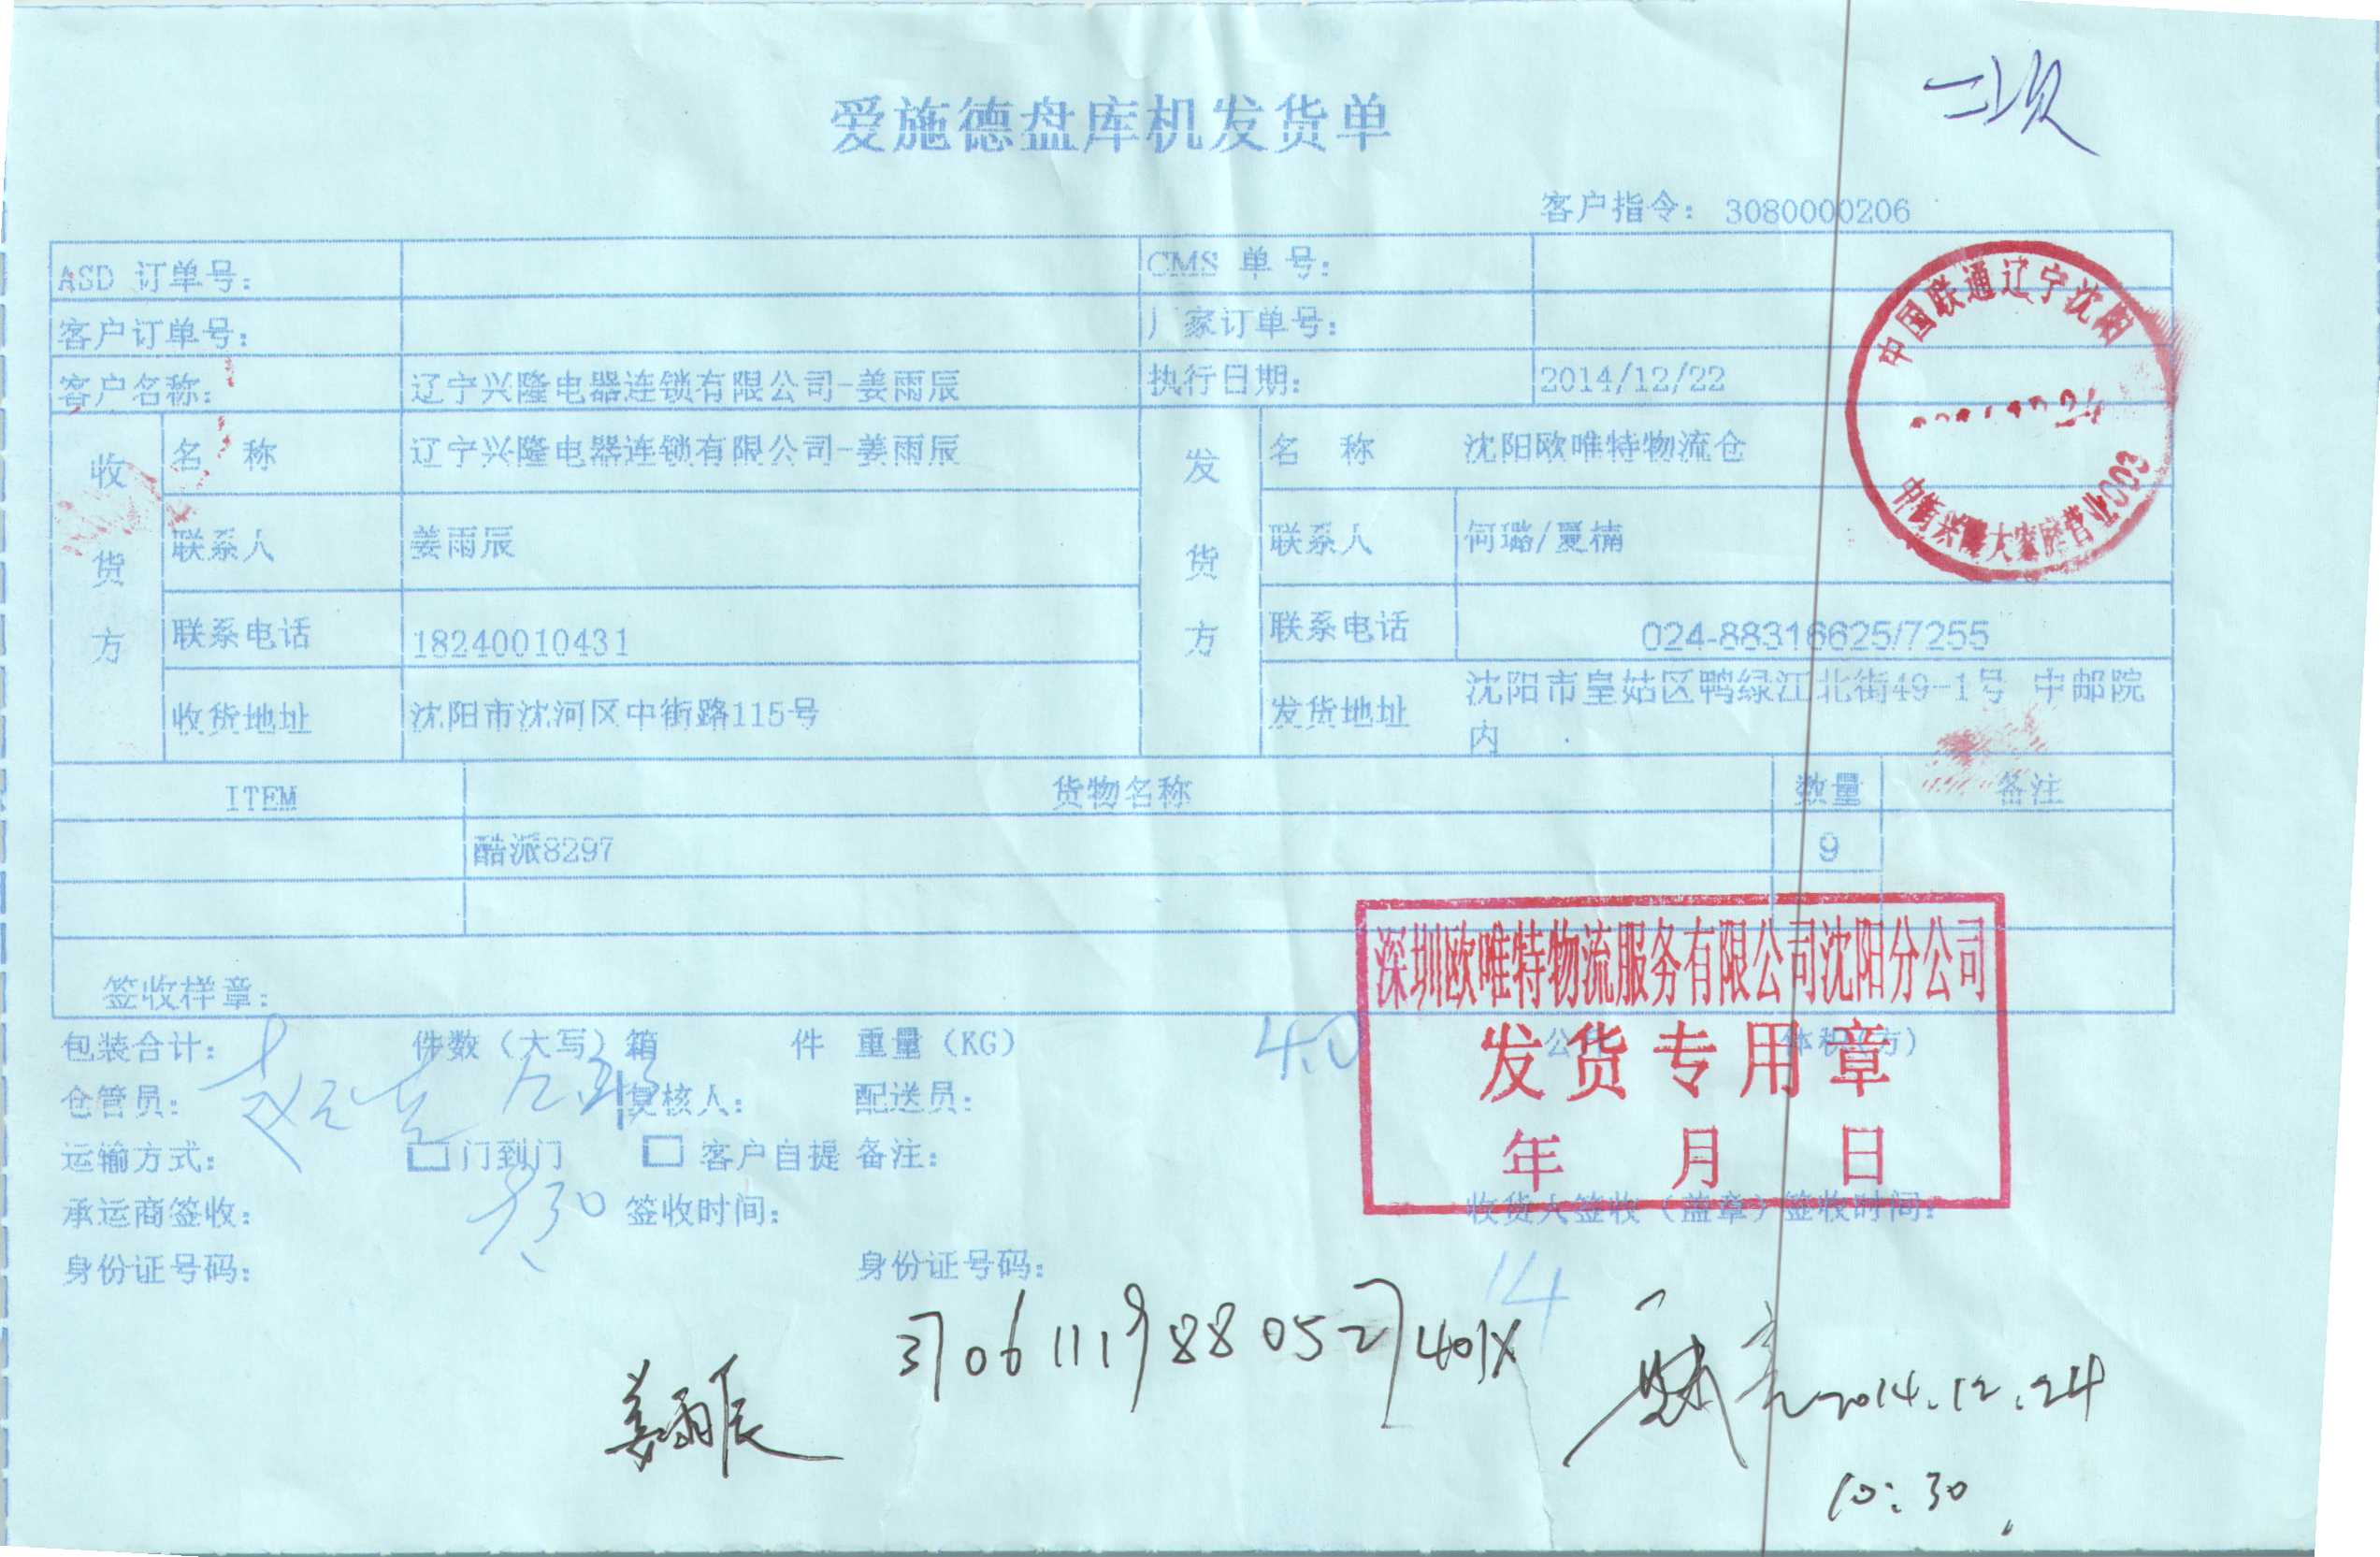 二次
爱施德盘库机发货单
客户指令： 3080000206
ASD 订单号： CMS 单 号：
客户订单号： 厂家订单号：
客户名称： 辽宁兴隆电器连锁有限公司-姜雨辰 执行日期： 2014/12/22
收货方 名 称 辽宁兴隆电器连锁有限公司-姜雨辰 发货方 名 称 沈阳欧唯特物流仓
联系人 姜雨辰 联系人 何璐/夏楠
联系电话 18240010431 联系电话 024-88316625/7255
收货地址 沈阳市沈河区中街路115号 发货地址 沈阳市皇姑区鸭绿江北街49-1号 中邮院
内
中国联通辽宁沈阳
中街兴隆大家庭营业003
ITEM 货物名称 数量 备注
酷派8297 9
签收样章：
深圳欧唯特物流服务有限公司沈阳分公司
发货专用章
年 月 日
包装合计： 件数（大写）箱 件 重量（KG） 4.0 体积(方)
仓管员： 复核人： 配送员：
运输方式： 门到门 客户自提 备注：
承运商签收： 签收时间： 收货人签收（盖章）签收时间：
身份证号码： 身份证号码： 14
37061119880527401X
姜雨辰
2014.12.24
10:30